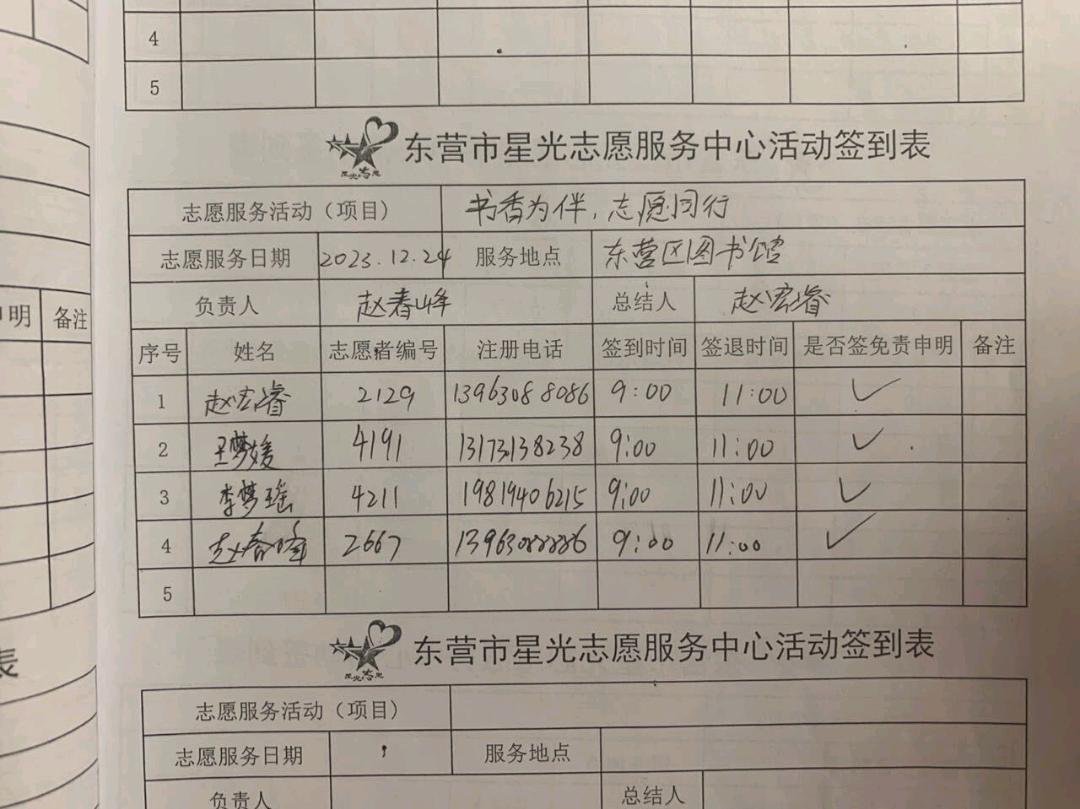 4
5
明
备注
表
星光志愿
东营市星光志愿服务中心活动签到表
志愿服务活动（项目） 书香为伴，志愿同行
志愿服务日期 2023.12.24 服务地点 东营区图书馆
负责人 赵春峰 总结人 赵宏睿
序号 姓名 志愿者编号 注册电话 签到时间 签退时间 是否签免责申明 备注
1 赵宏睿 2129 13963088086 9:00 11:00 ✓
2 王梦媛 4191 13173138238 9:00 11:00 ✓
3 李梦瑶 4211 19819406215 9:00 11:00 ✓
4 赵春峰 2667 9:00 11:00 ✓
5
星光志愿
东营市星光志愿服务中心活动签到表
志愿服务活动（项目）
志愿服务日期 服务地点
负责人 总结人